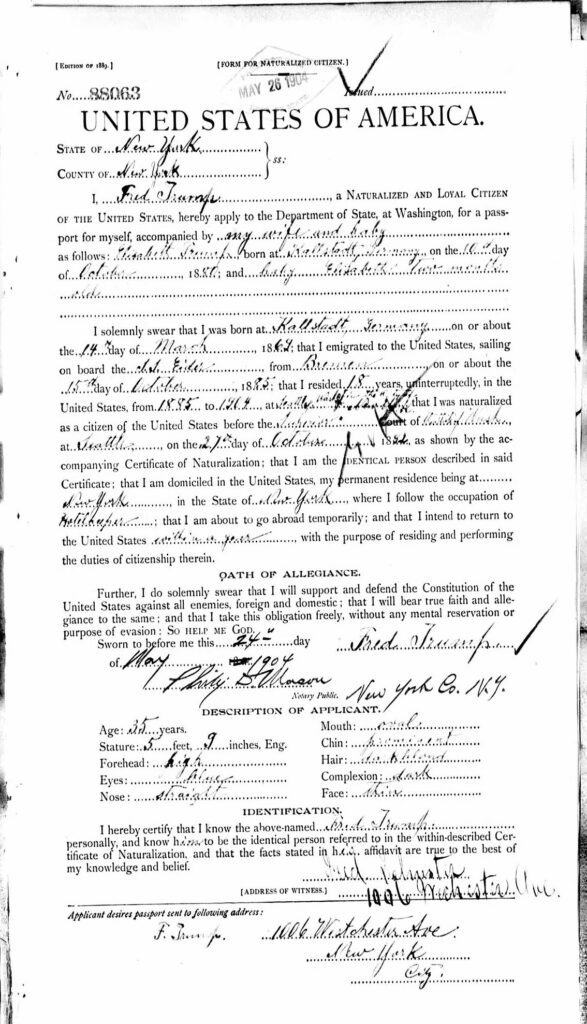 [Edition of 1889.]
[FORM FOR NATURALIZED CITIZEN.]
MAY 26 1904
No. 88063 Issued
UNITED STATES OF AMERICA.
STATE OF New York
COUNTY OF New York } ss:
I, Fred Trump, a NATURALIZED AND LOYAL CITIZEN
OF THE UNITED STATES, hereby apply to the Department of State, at Washington, for a pass-
port for myself, accompanied by my wife and baby
as follows: Elisabeth Trump born at Kallstadt, Germany, on the 10th day
of October, 1880; and baby Elizabeth Two months
old
I solemnly swear that I was born at Kallstadt, Germany on or about
the 14th day of March, 1869; that I emigrated to the United States, sailing
on board the S.S. Eider, from Bremen on or about the
15th day of October, 1885; that I resided 18 years, uninterruptedly, in the
United States, from 1885 to 1904 at Seattle that I was naturalized
as a citizen of the United States before the Superior Court of
at Seattle, on the 27th day of October, as shown by the ac-
companying Certificate of Naturalization; that I am the IDENTICAL PERSON described in said
Certificate; that I am domiciled in the United States, my permanent residence being at
New York, in the State of New York, where I follow the occupation of
Hotelkeeper; that I am about to go abroad temporarily; and that I intend to return to
the United States within a year, with the purpose of residing and performing
the duties of citizenship therein.
OATH OF ALLEGIANCE.
Further, I do solemnly swear that I will support and defend the Constitution of the
United States against all enemies, foreign and domestic; that I will bear true faith and alle-
giance to the same; and that I take this obligation freely, without any mental reservation or
purpose of evasion: SO HELP ME GOD.
Sworn to before me this 24th day Fred Trump
of May 1904
Philip Mason
Notary Public. New York Co. N.Y.
DESCRIPTION OF APPLICANT.
Age: 35 years. Mouth: oval
Stature: 5 feet, 9 inches, Eng. Chin: prominent
Forehead: high Hair: dark blond
Eyes: blue Complexion: dark
Nose: straight Face: thin
IDENTIFICATION.
I hereby certify that I know the above-named Fred Trump
personally, and know him to be the identical person referred to in the within-described Cer-
tificate of Naturalization, and that the facts stated in his affidavit are true to the best of
my knowledge and belief.
Fred
[ADDRESS OF WITNESS.] 1006 Westchester Ave.
Applicant desires passport sent to following address:
F. Trump. 1006 Westchester Ave.
New York
City.